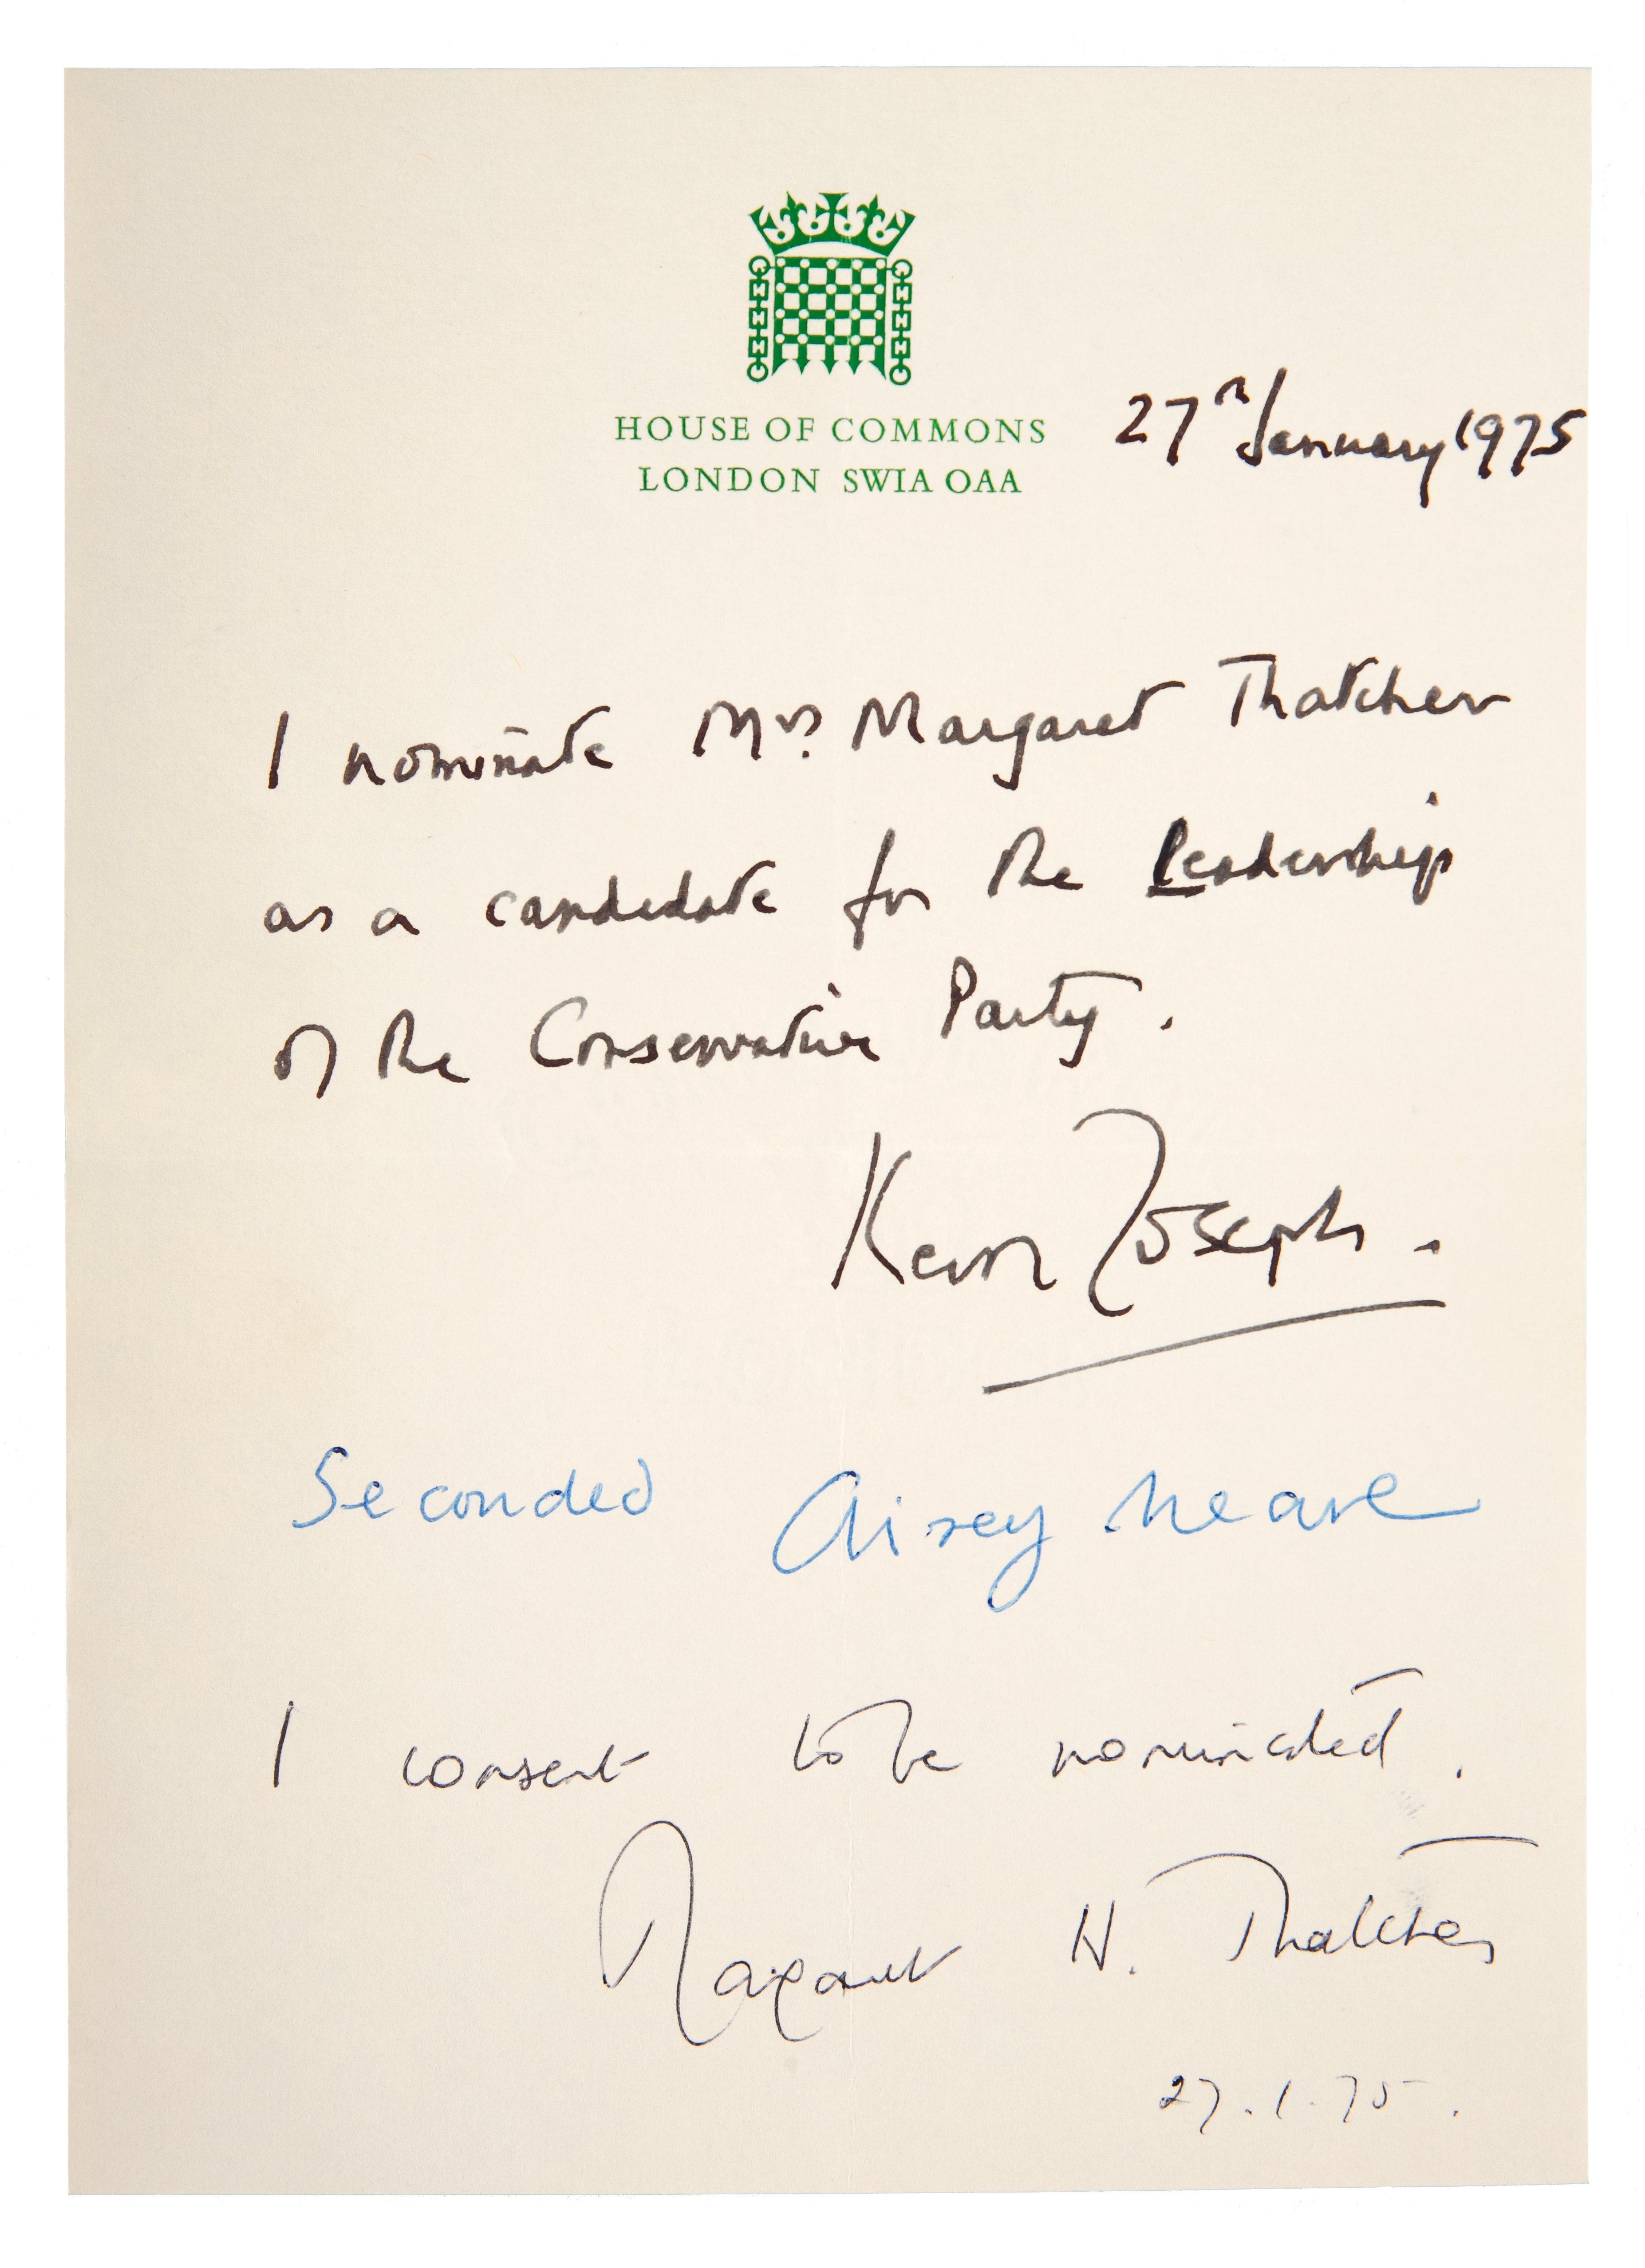 HOUSE OF COMMONS
LONDON SW1A 0AA
27th January 1975
I nominate Mrs. Margaret Thatcher
as a candidate for the Leadership
of the Conservative Party.
Keith Joseph.
Seconded Airey Neave
I consent to be nominated.
Margaret H. Thatcher
27.1.75.